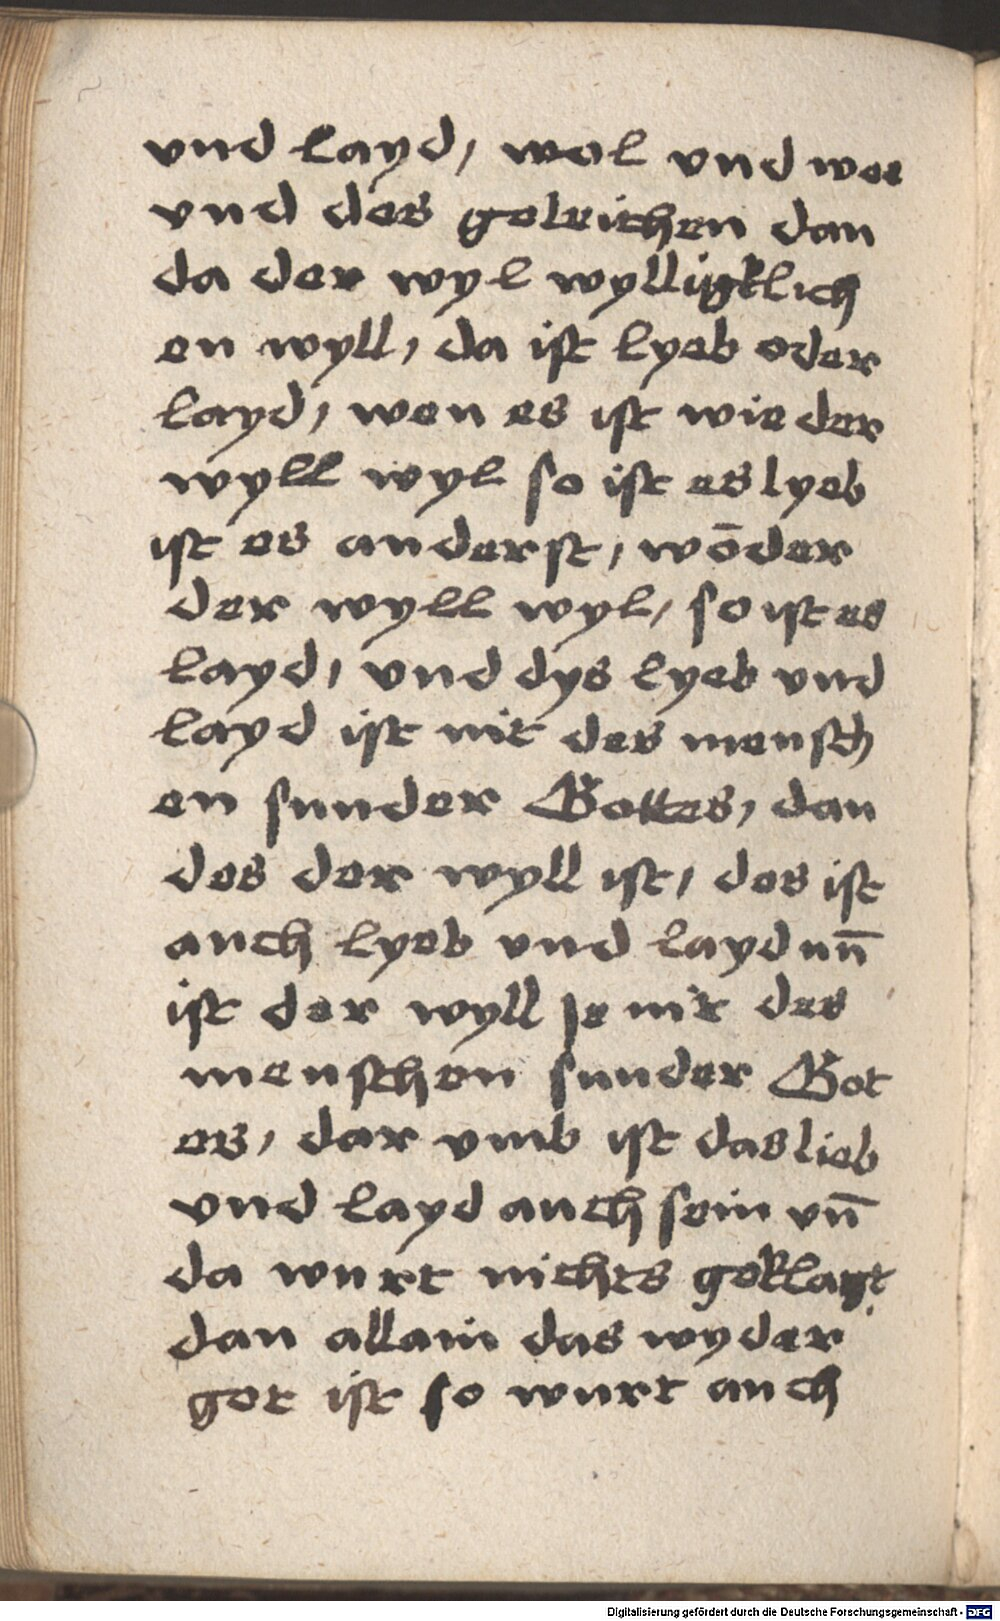 vnd layd, wol vnd wee
vnd des geleichen dan
da der wyl wylligklich
en wyll, da ist lyeb oder
layd, wen es ist wie der
wyll wyl so ist es lyeb
ist es anderst, wōder
der wyll wyl, so ist es
layd, vnd dys lyeb vnd
layd ist nit des mensch
en sunder Gottes, dan
des der wyll ist, des ist
auch lyeb vnd layd uñ
ist der wyll Je nit des
menschen sunder Got
es, dar vmb ist das lieb
vnd layd auch sein vñ
da wurt nichts geklagt
dan allain das wyder
got ist so wurt auch
Digitalisierung gefördert durch die Deutsche Forschungsgemeinschaft - DFG